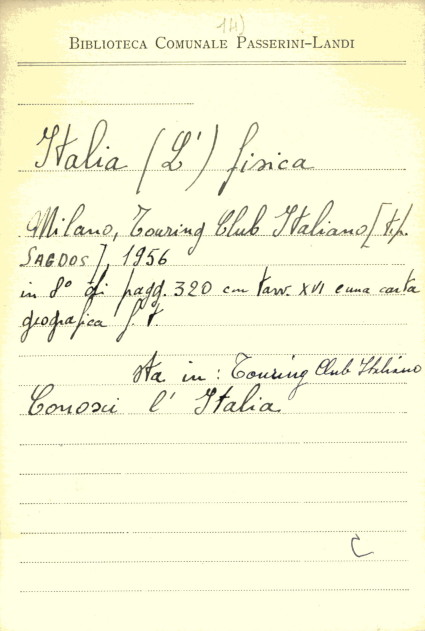 14)
BIBLIOTECA COMUNALE PASSERINI-LANDI
Italia (L') fisica
Milano, Touring Club Italiano [tip.
SAGDOS], 1956
in 8° di pagg. 320 con tavv. XVI e una carta
geografica f. t.
sta in: Touring Club Italiano
Conosci l'Italia
C